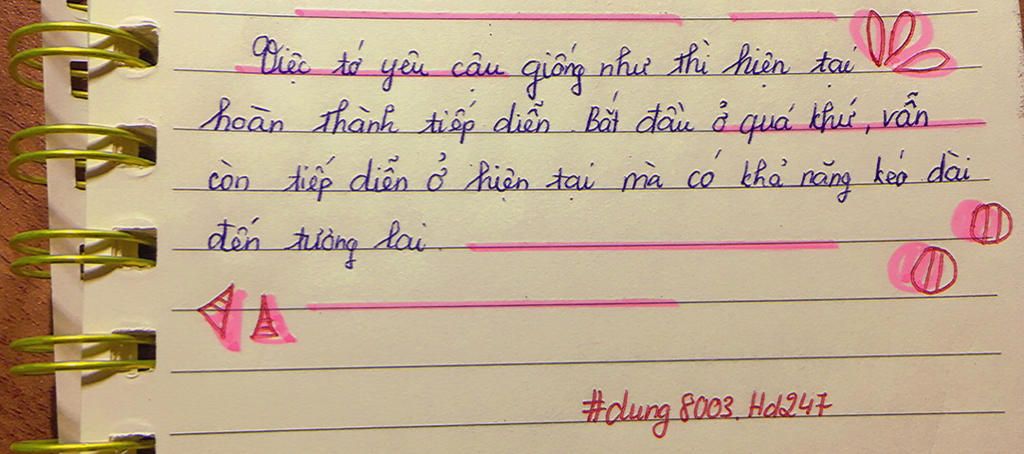 Việc tớ yêu cậu giống như thì hiện tại
hoàn thành tiếp diễn. Bắt đầu ở quá khứ, vẫn
còn tiếp diễn ở hiện tại mà có khả năng kéo dài
đến tương lai.
#dung8003.Hd247